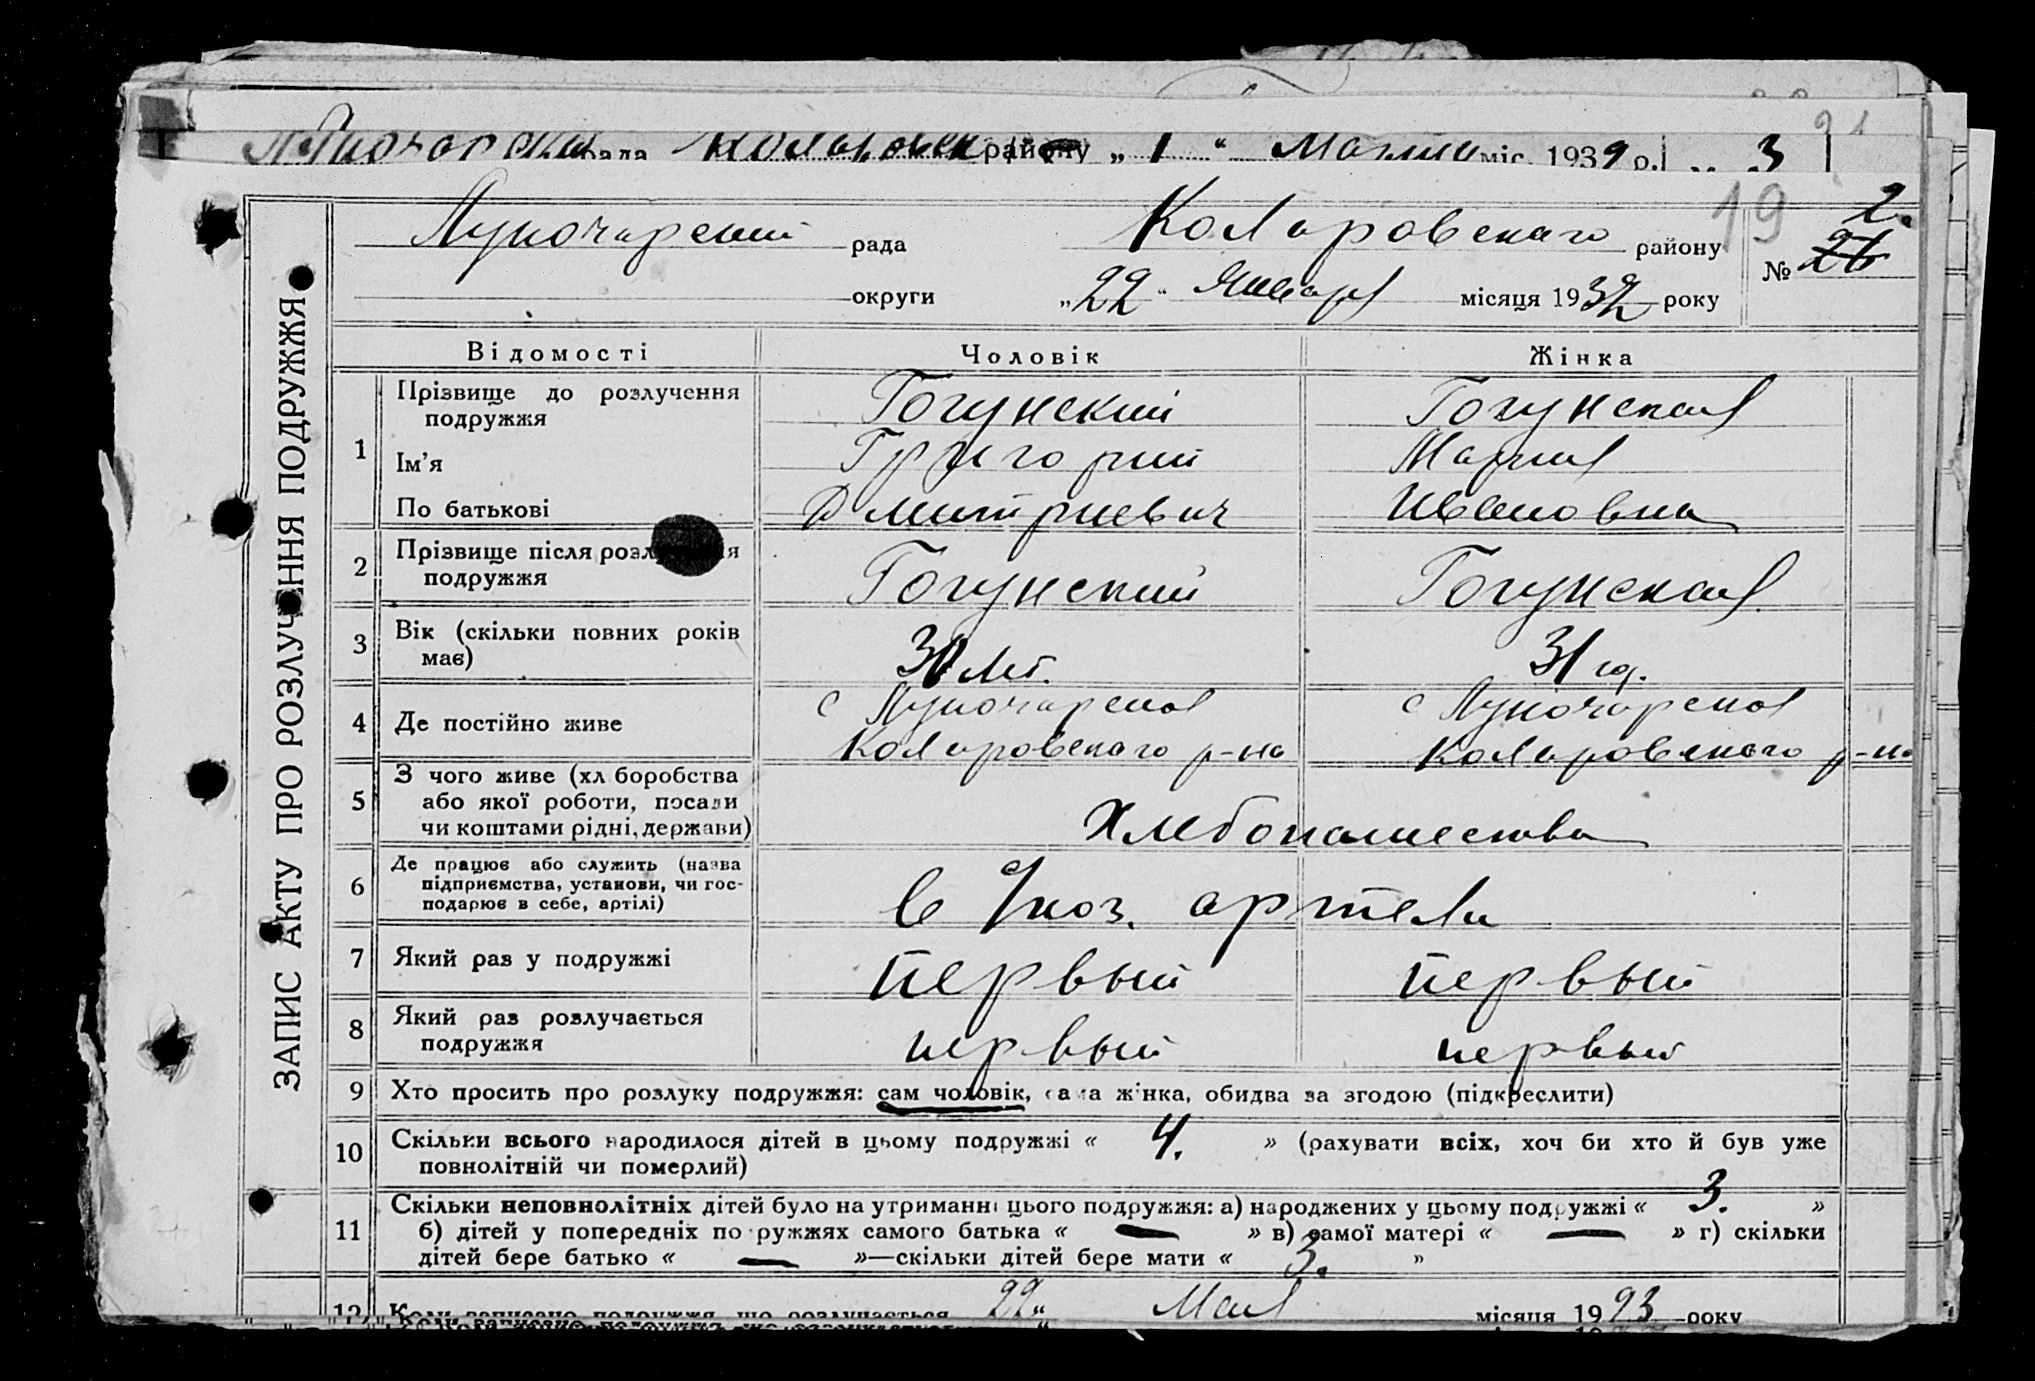 рада району „ 1 “ міс. 1939 р. 3
21
Луночарский рада Коларовскаго району 19 2.
№ 26
округи „22“ Января місяця 1932 року
ЗАПИС АКТУ ПРО РОЗЛУЧЕННЯ ПОДРУЖЖЯ
Відомості Чоловік Жінка
1 Прізвище до розлучення подружжя Гогунский Гогунская
Ім’я Григорий Мария
По батькові Дмитриевич Ивановна
2 Прізвище після розлучення
подружжя Гогунский Гогунская
3 Вік (скільки повних років
має) 30 лет. 31 год.
4 Де постійно живе с Луночарское с Луночарское
Коларовскаго р-на Коларовского р-на
5 З чого живе (хліборобства
або якої роботи, посади
чи коштами рідні, держави) Хлебопашества
6 Де працює або служить (назва
підприємства, установи, чи гос-
подарює в себе, артілі) в с/хоз. артели
7 Який раз у подружжі первый первый
8 Який раз розлучається
подружжя первый первый
9 Хто просить про розлуку подружжя: сам чоловік, сама жінка, обидва за згодою (підкреслити)
10 Скільки всього народилося дітей в цьому подружжі « 4. » (рахувати всіх, хоч би хто й був уже
повнолітній чи померлий)
11 Скільки неповнолітніх дітей було на утриманні цього подружжя: а) народжених у цьому подружжі « 3. »
б) дітей у попередніх подружжях самого батька « — » в) самої матері « — » г) скільки
дітей бере батько « — »—скільки дітей бере мати « 3. »
12 Коли записано подружжя, що розлучається 22“ Мая місяця 1923 року